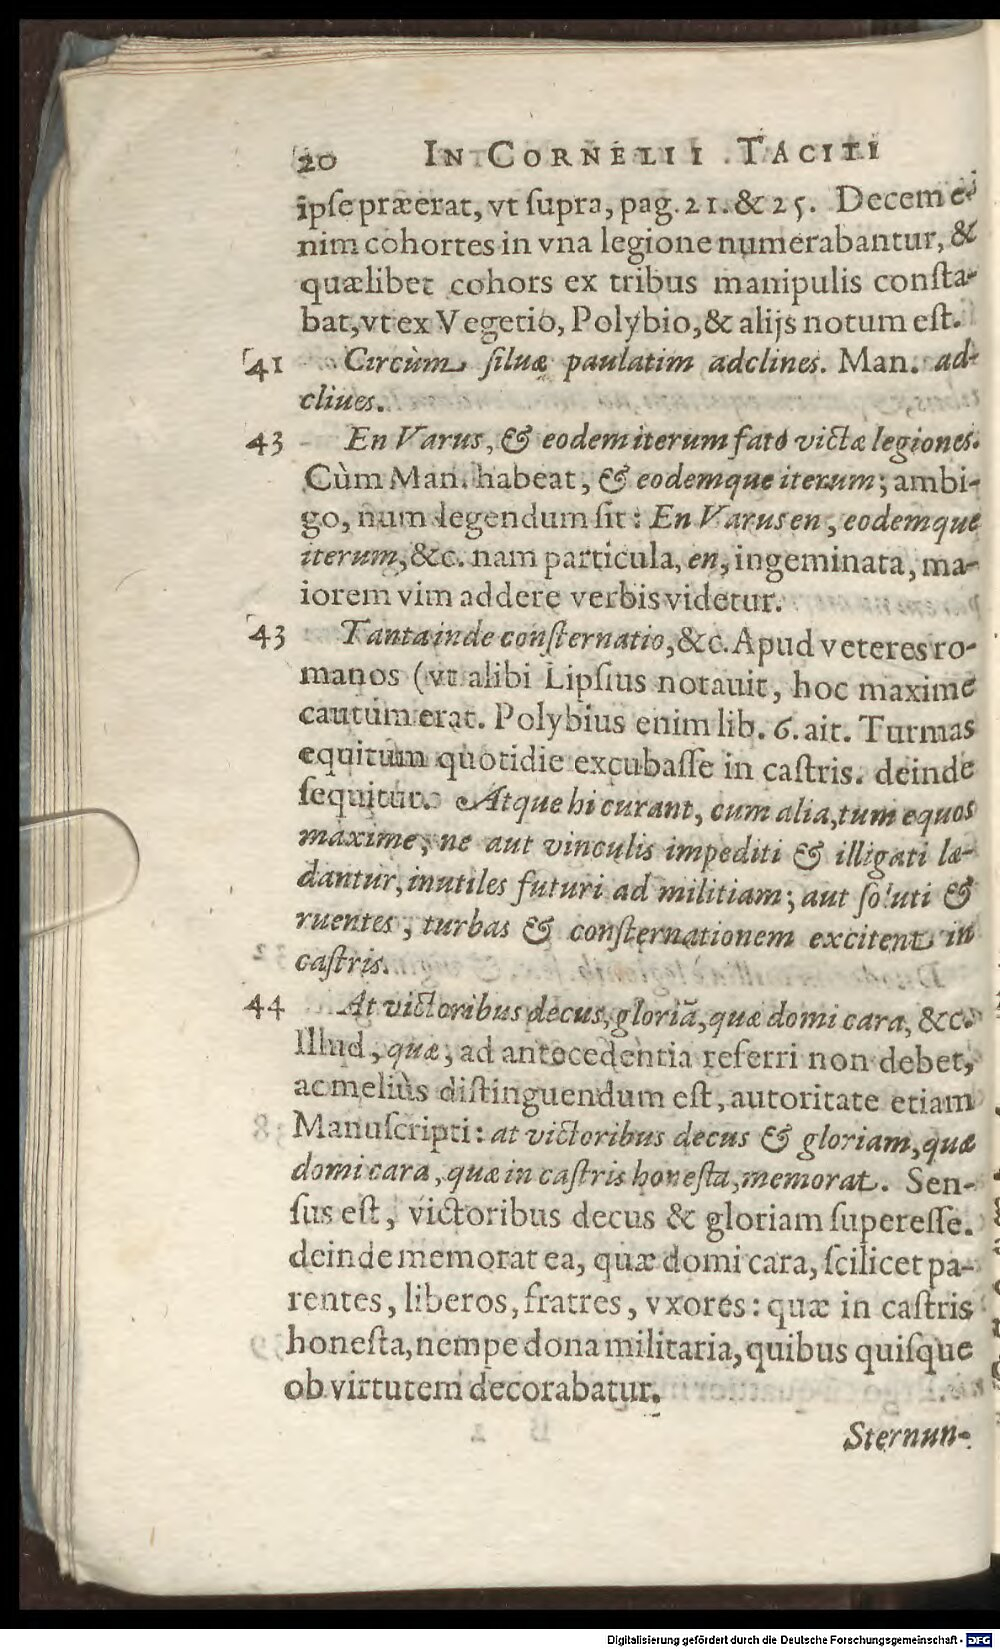 20 IN CORNELII TACITI
ipſe præerat, vt ſupra, pag. 21. & 25. Decem e-
nim cohortes in vna legione numerabantur, &
quælibet cohors ex tribus manipulis conſta-
bat, vt ex Vegetio, Polybio, & alijs notum eſt.
41 Circùm ſiluæ paulatim adclines. Man. ad-
cliues.
43 En Varus, & eodem iterum fato victæ legiones.
Cùm Man. habeat, & eodemque iterum; ambi-
go, num legendum ſit: En Varus en, eodemque
iterum, &c. nam particula, en, ingeminata, ma-
iorem vim addere verbis videtur.
43 Tanta inde conſternatio, &c. Apud veteres ro-
manos (vt alibi Lipſius notauit, hoc maxime
cautum erat. Polybius enim lib. 6. ait. Turmas
equitum quotidie excubaſſe in caſtris. deinde
ſequitur. Atque hi curant, cum alia, tum equos
maxime, ne aut vinculis impediti & illigati læ-
dantur, inutiles futuri ad militiam; aut ſoluti &
ruentes, turbas & conſternationem excitent in
caſtris.
44 At victoribus decus, gloriã, quæ domi cara, &c.
Illud, quæ, ad antecedentia referri non debet,
ac meliùs diſtinguendum eſt, autoritate etiam
Manuſcripti: at victoribus decus & gloriam, quæ
domi cara, quæ in caſtris honeſta, memorat. Sen-
ſus eſt, victoribus decus & gloriam ſupereſſe.
deinde memorat ea, quæ domi cara, ſcilicet pa-
rentes, liberos, fratres, vxores: quæ in caſtris
honeſta, nempe dona militaria, quibus quiſque
ob virtutem decorabatur.
Sternun-
Digitalisierung gefördert durch die Deutsche Forschungsgemeinschaft - DFG